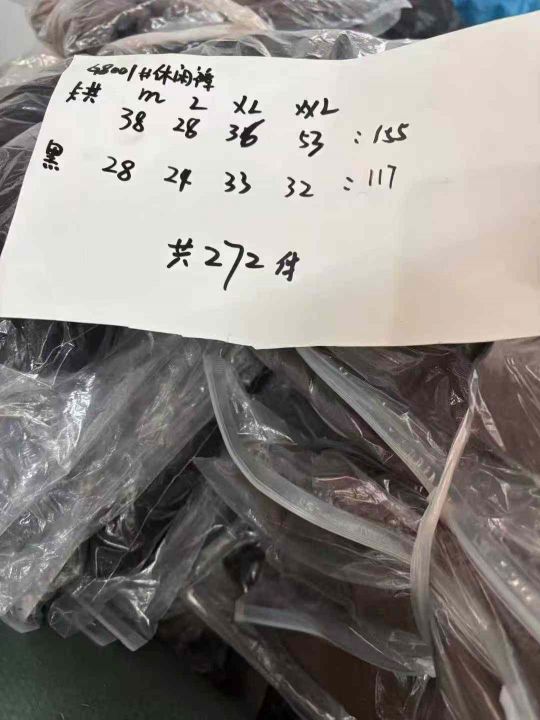 68001#休闲裤
卡其 M L XL XXL
38 28 36 53 : 155
黑 28 24 33 32 : 117
共272件